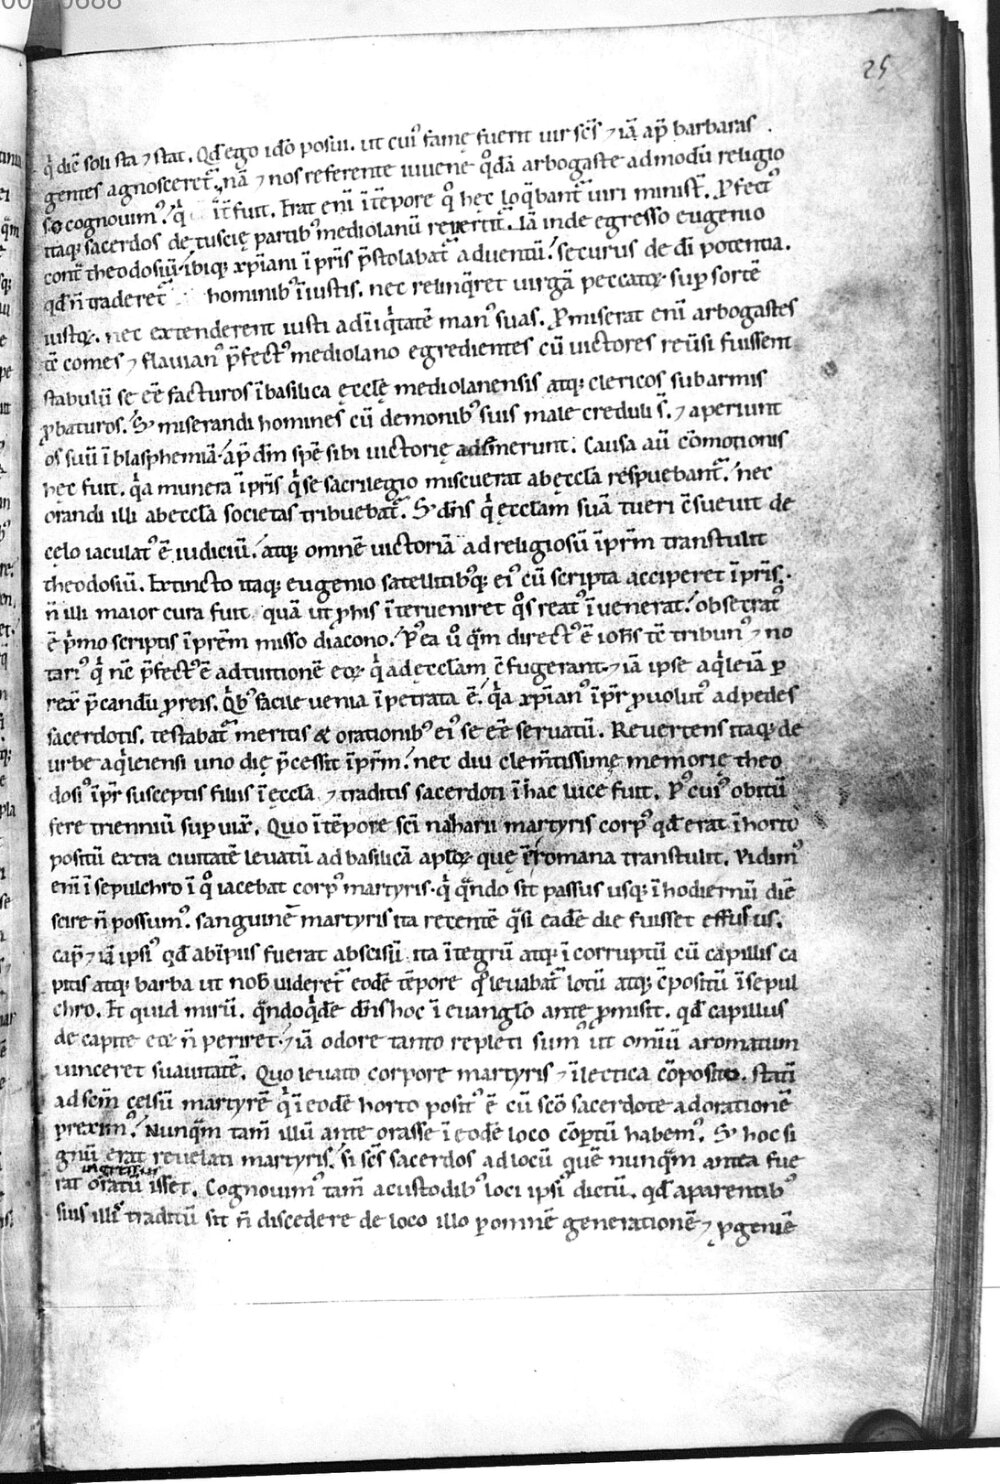 25
q̇ diē soli sta ⁊ stat. Qđ ego idō posui. ut cuiꝰ famę fuerit uir sc̄s ⁊ iā ap̄ barbaras
gentes agnosceret̃. nā ⁊ nos referente iuuene qͦdā arbogaste admodū religio
so cognouimꝰ. q̇ it̄ fuit. Erat eni ī tēpore qͦ hec loq̄bant̃ uiri minist̃. Ꝓfectꝰ
itaq; sacerdos de tuscię partibꝰ mediolanū reuertit̃. Iā inde egresso eugenio
cont̃ theodosiū. ibiq; xp̄iani ī pr̄is p̄stolabat̃ aduentū. securus de dī potentia.
qđ n̄ traderet̃ hominibꝰ īiustis. nec relinq̄ret uirgā peccatoꝝ sup sortē
iustoꝝ. nec extenderent iusti ad īiq̇tatē manꝰ suas. Ꝓmiserat eni arbogastes
tē comes ⁊ flauianꝰ p̄fectꝰ mediolano egredientes cū uictores reūsi fuissent
stabulū se eē facturos ī basilica ęcclę mediolanensis atq; clericos sub armis
ꝓbaturos. S; miserandi homines cū demonibꝰ suis male creduli s̄. ⁊ aperiunt
os suū ī blasphemiā. ap̄ dm̄ spē sibi uictorię adimerunt. Causa aū cōmotionis
hęc fuit. q̇a munera īpr̄is q̇ se sacrilegio miscuerat ab eccl̄a respuebant̃. nec
orandi illi ab eccl̄a societas tribuebat̃. S; dn̄s q̇ ęccl̄am suā tueri c̄sueuit de
cęlo iaculatꝰ ē iudiciū. atq; omnē uictoriā ad religiosū īpr̄m transtulit
theodosiū. Extincto itaq; eugenio satellitibꝰq; eiꝰ cū scripta acciperet īpr̄is.
n̄ illi maior cura fuit quā ut ꝓ his īterueniret qͦs reatꝰ īuenerat. obsecratꝰ
ē ṗmo scriptis īpr̄em misso diacono. Pꝰea ūͦ q̄m directꝰ ē ioh̄s tē tribunꝰ ⁊ no
tariꝰ q̇ nc̄ p̄fectꝰ ē ad tuitionē eoꝝ q̇ ad ęccl̄am c̄fugerant. ⁊ iā ipse aq̇leiā ꝑ
rex̄ p̄candū ꝓ reis. Q̇bꝰ facile uenia īpetrata ē. q̇a xp̄ianꝰ īpr̄ ꝓuolutꝰ ad pedes
sacerdotis. testabat̃ meritis & orationibꝰ eiꝰ se eē seruatū. Reuertens itaq; de
urbe aq̇leiensi uno dię p̄cessit īpr̄m. nec diu clem̄tissimę memorię theo
dosiꝰ īpr̄ susceptis filiis ī eccl̄a ⁊ traditis sacerdoti ī hac luce fuit. Pꝰ cuiꝰ obitū
fere trienniū sup uix̄. Quo ī tēpore sc̄i naharii martyris corpꝰ qđ erat ī horto
positū extra ciuitatē leuatū ad basilicā aploꝝ quę ī romana transtulit. Vidimꝰ
eni ī sepulchro ī qͦ iacebat corpꝰ martyris. q̇ q̄ndo sit passus usq; ī hodiernū diē
scire n̄ possumꝰ. sanguinē martyris ita recentē q̄si eadē die fuisset effusus.
capꝰ ⁊ iā ipsiꝰ qđ ab īpiis fuerat abscisū ita ītegrū atq; ī corruptū cū capillis ca
pitis atq; barba ut nob̄ uideret̃ eodē tēpore qͦ leuabat̃ lotū atq; c̄positū ī sepul
chro. Et quid mirū. q̄ndoq̇dē dn̄s hoc ī euanglo ante ꝓmisit. qđ capillus
de capite eoꝝ n̄ periret. ⁊ iā odore tanto repleti sumꝰ ut omiū aromatum
uinceret suauitatē. Quo leuato corpore martyris ⁊ ī lectica cōposito. statī
ad sc̄m cęlsū martyrē q̇ ī eodē horto positꝰ ē cū sc̄o sacerdote ad orationē
preximꝰ. Nunq̄m tam̄ illū ante orasse ī eodē loco cōptū habemꝰ. S; hoc si
gnū erat reuelati martyris. si sc̄s sacerdos ad locū quē nunq̄m antea fue
ingressus
rat oratū isset. Cognouimꝰ tam̄ a custodibꝰ loci ipsiꝰ dictū. qđ a parentibꝰ
suis illis traditū sit n̄ discedere de loco illo ꝑ omnē generationē ⁊ ꝓgeniē